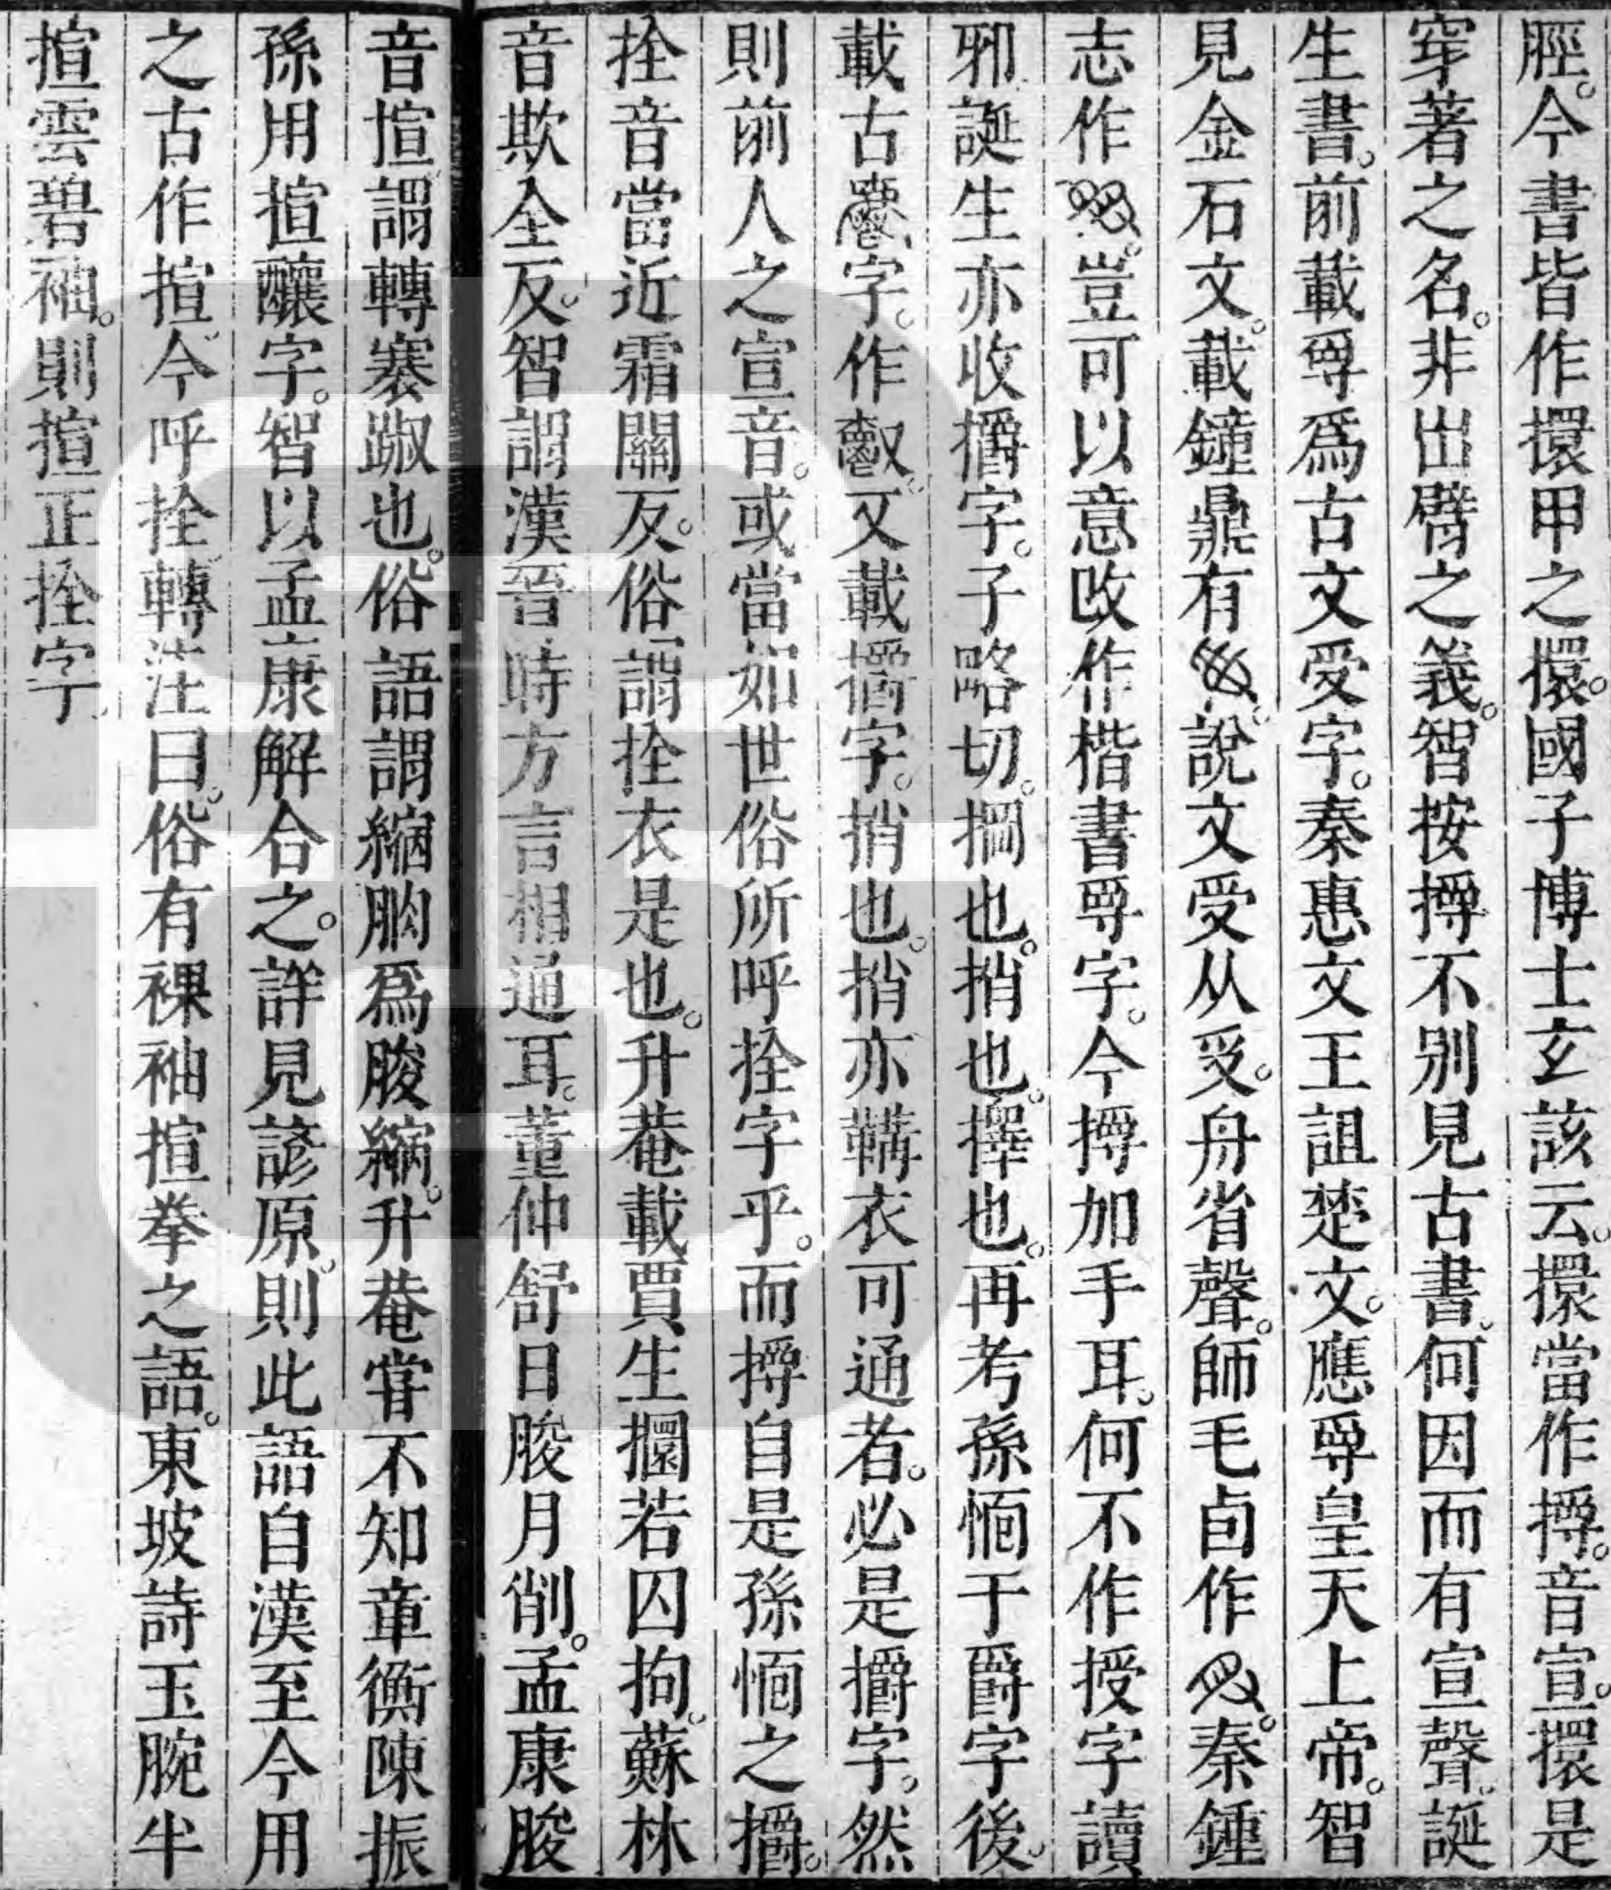 脛。今書皆作擐甲之擐。國子博士玄該云。擐當作㩳。音宣。擐是
穿著之名。非出臂之義。智按㩳不別見古書。何因而有宣聲。誕
生書。前載㝵爲古文受字。秦惠文王詛楚文。應㝵皇天上帝。智
見金石文。載鐘鼎有。說文受从𠬪。舟省聲。師毛卣作。秦鍾
志作。豈可以意改作楷書㝵字。今㩳加手耳。何不作授字讀
邪誕生亦收㩱字。子略切。摑也。捎也。擇也。再考孫愐于爵字後。
載古字。作。又載字。捎也。捎亦韝衣可通者。必是㩱字。然
則前人之宣音。或當如世俗所呼拴字乎。而㩳自是孫愐之㩱。
拴音當近霜關反。俗謂拴衣是也。升菴載賈生攌若囚拘。蘇林
音欺全反。智謂漢晉時方言相通耳。董仲舒日朘月削。孟康朘
音揎謂轉褰踧也。俗語謂縮朒爲朘縮。升菴嘗不知章衡陳振
孫用揎釀字。智以孟康解合之。詳見諺原。則此語自漢至今用
之古作揎今呼拴轉注曰。俗有裸袖揎拳之語。東坡詩玉腕半
揎雲碧袖。則揎正拴字